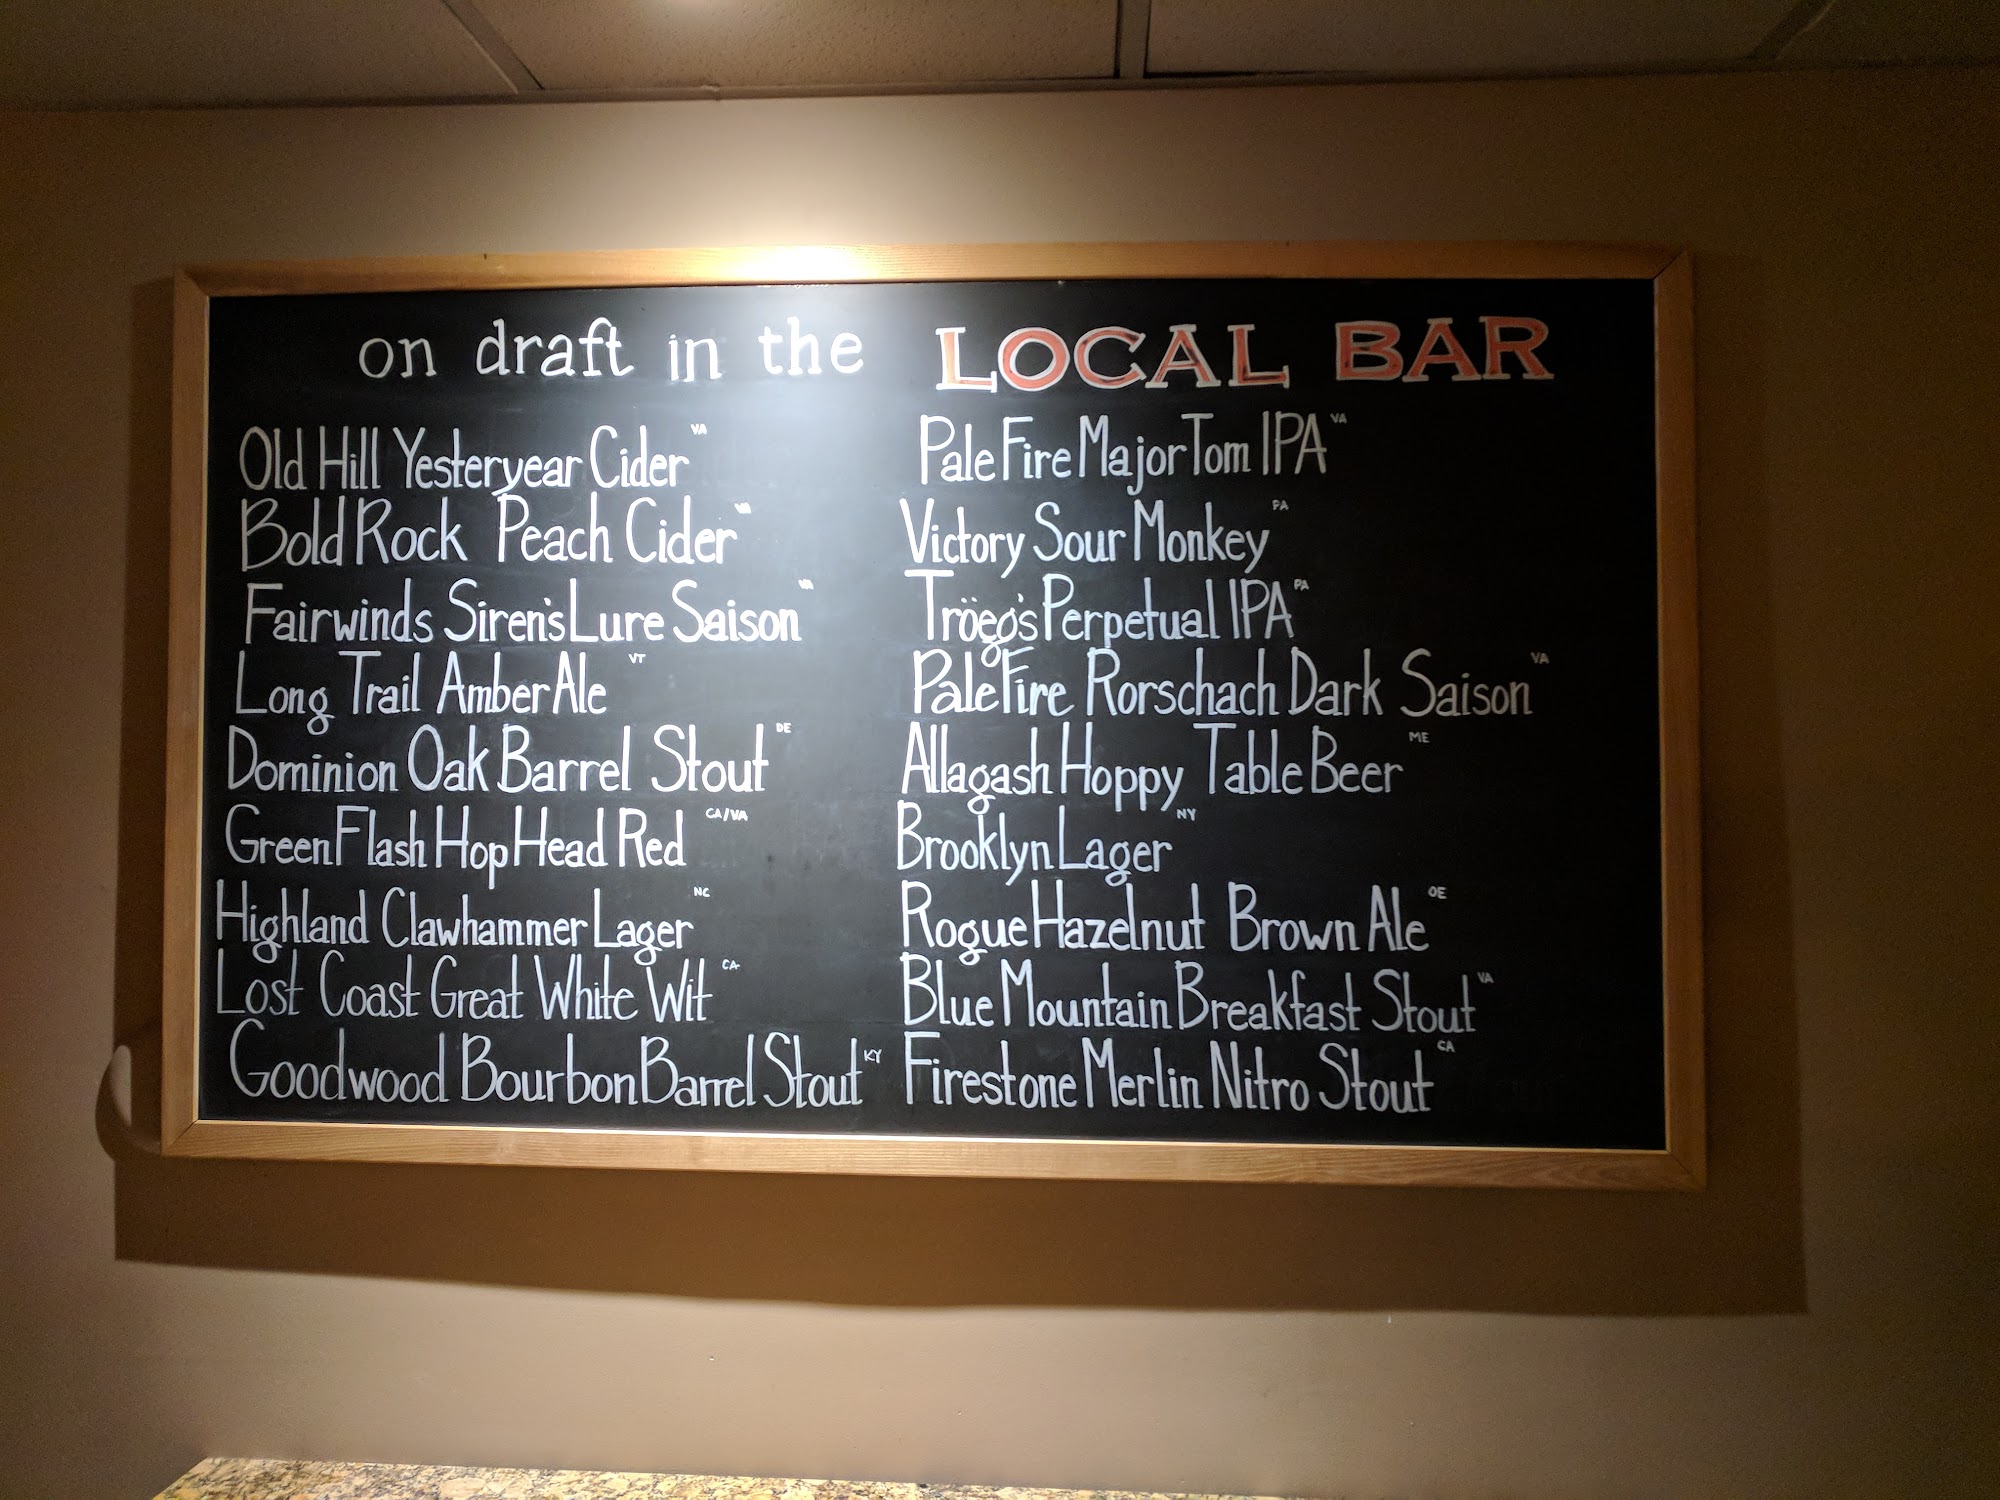 on draft in the LOCAL BAR
Old Hill Yesteryear Cider VA
Bold Rock Peach Cider VA
Fairwinds Siren's Lure Saison VA
Long Trail Amber Ale VT
Dominion Oak Barrel Stout DE
Green Flash Hop Head Red CA/VA
Highland Clawhammer Lager NC
Lost Coast Great White Wit CA
Goodwood Bourbon Barrel Stout KY
Pale Fire Major Tom IPA VA
Victory Sour Monkey PA
Tröeg's Perpetual IPA PA
Pale Fire Rorschach Dark Saison VA
Allagash Hoppy Table Beer ME
Brooklyn Lager NY
Rogue Hazelnut Brown Ale OE
Blue Mountain Breakfast Stout VA
Firestone Merlin Nitro Stout CA